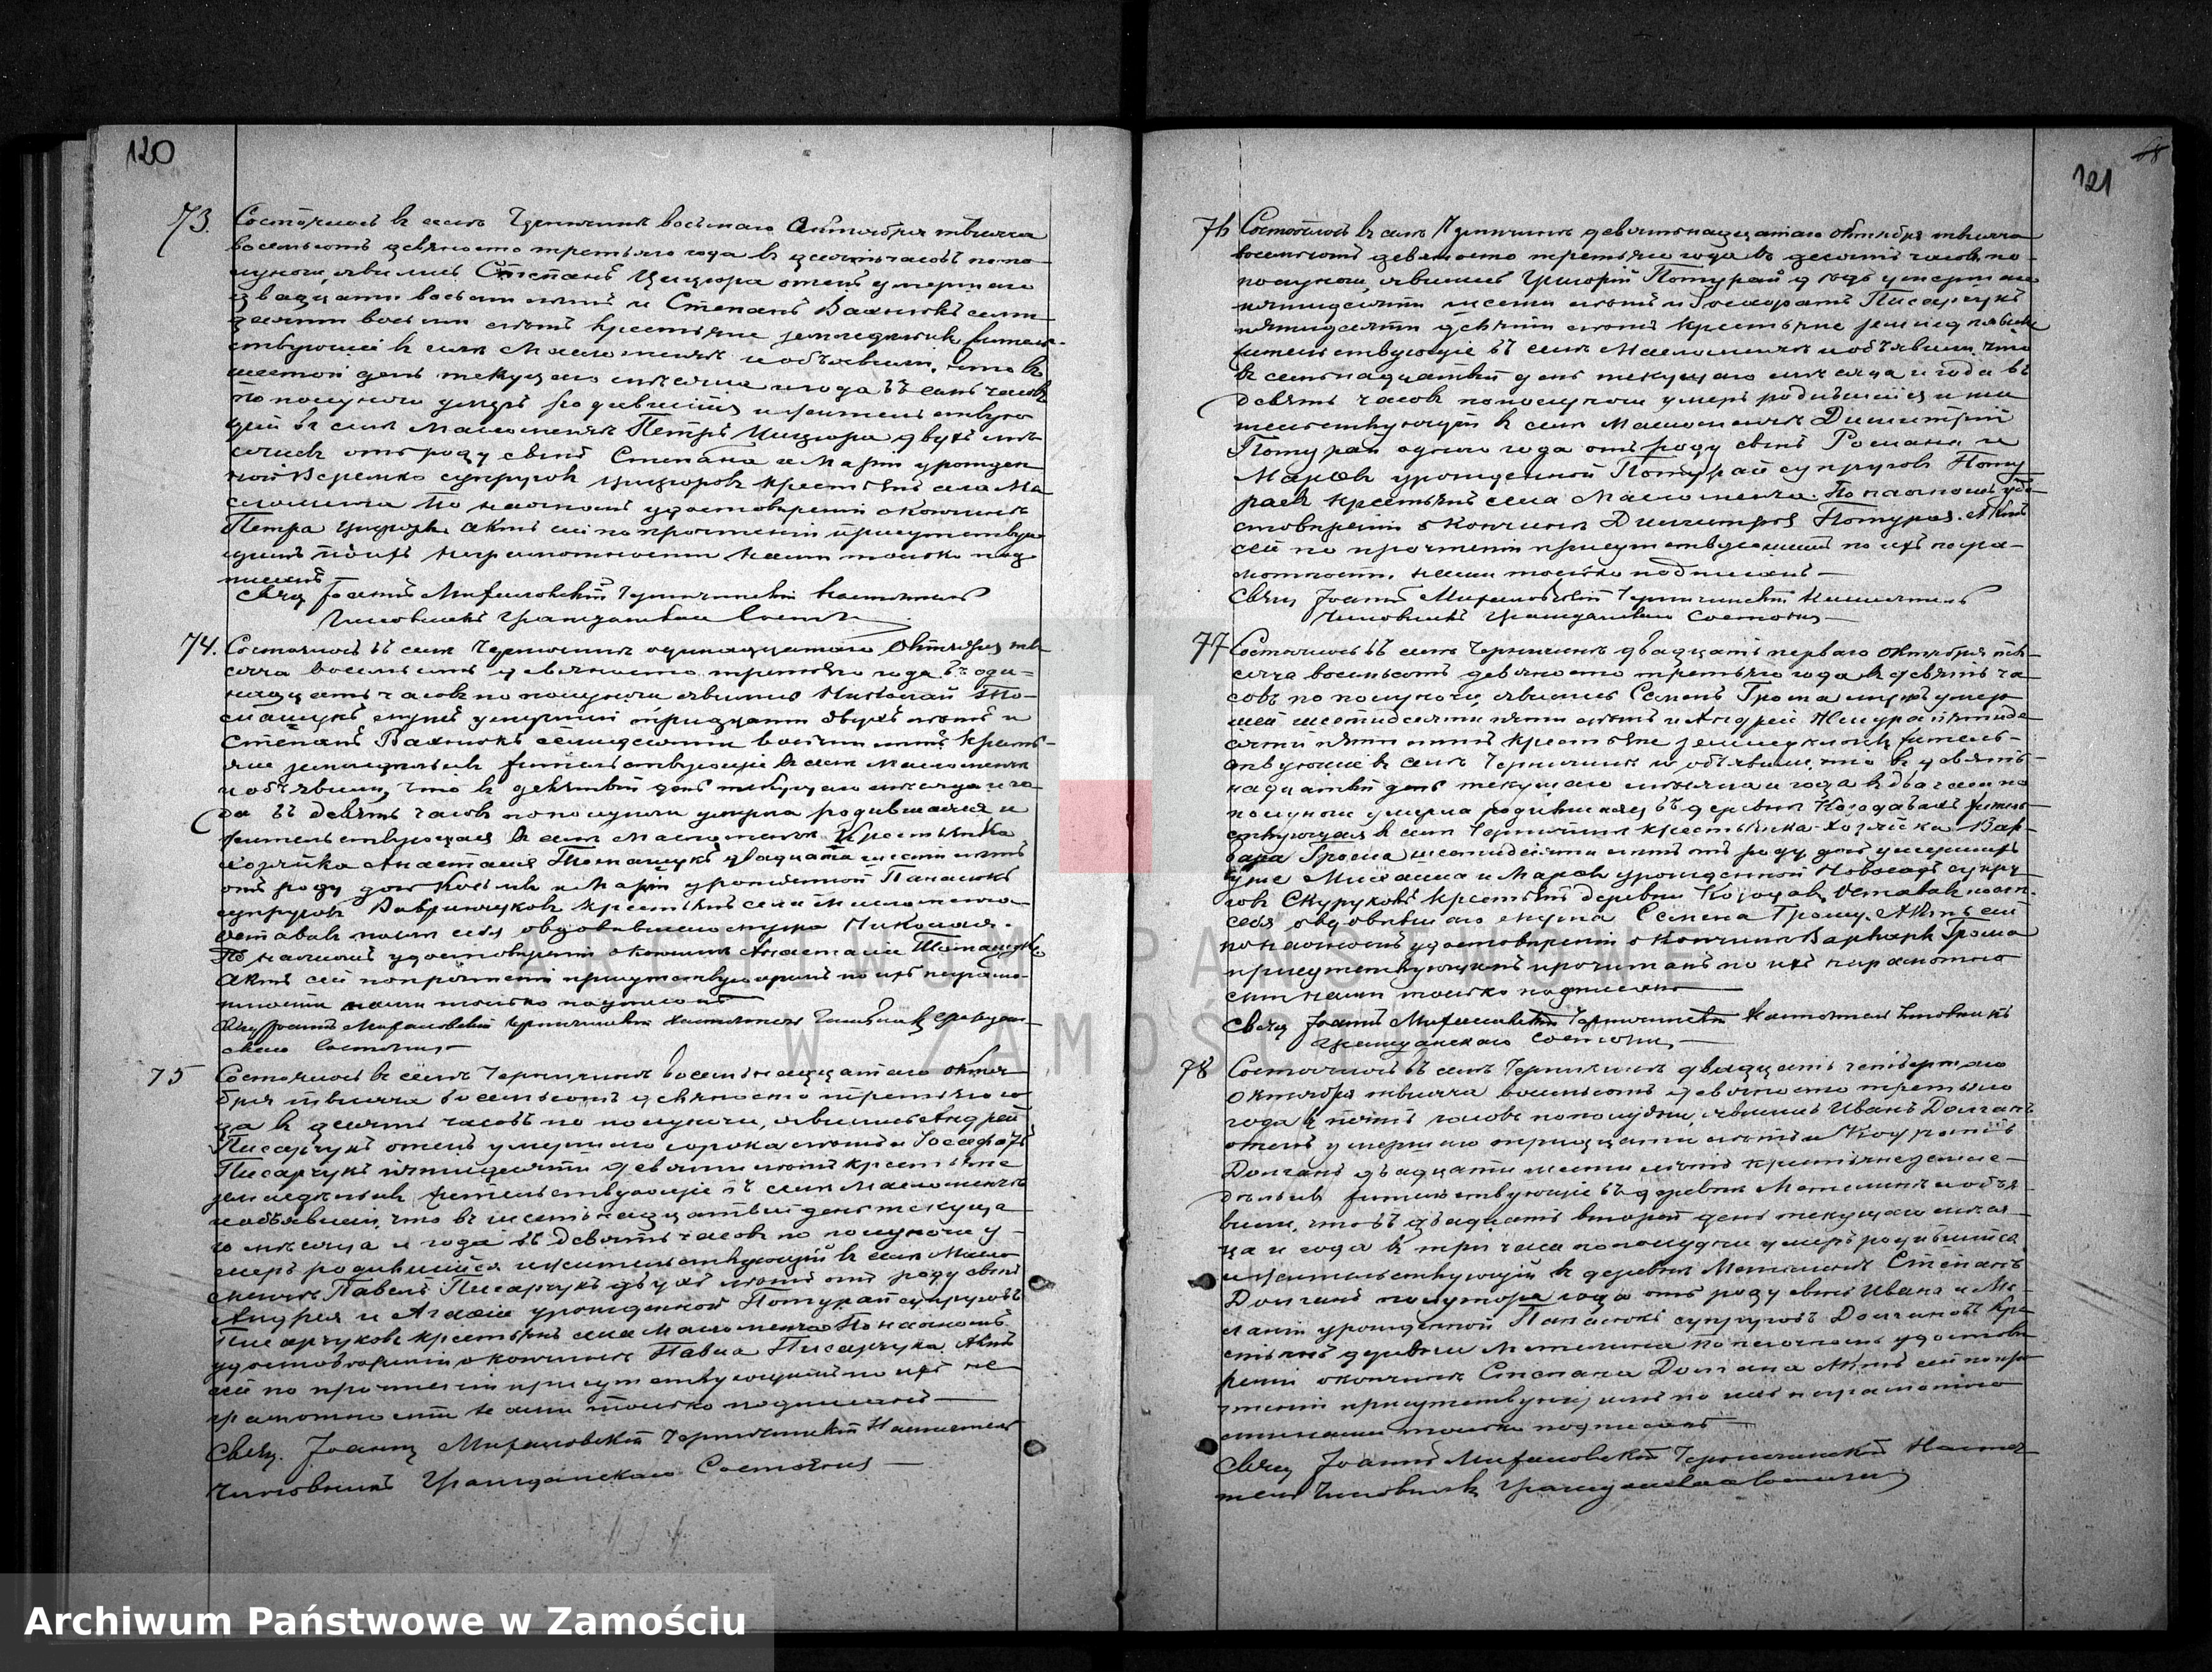 120
73. Состоялось в селѣ Черничинѣ восьмаго Октября тысяча
восемьсотъ девяносто третьяго года в десять часовъ по по-
луночи, явились Степанъ Цицюра отецъ умершаго
двадцати восьми лѣтъ и Степанъ Вахнюкъ семи-
десяти восьми лѣтъ крестьяне земледѣльцы житель-
ствующіе в селѣ Масломенчѣ и объявили, что в
шестой день текущаго мѣсяца и года въ семь часовъ
по полуночи умеръ родившійся и жительствую
щій в селѣ Масломенчѣ Петръ Цицюра двухъ мѣ-
сяцевъ отъ роду сынъ Степана и Маріи урожден
ной супруговъ Цицюровъ крестьянъ села Ма
сломенча По настномъ удостовѣреніи о кончинѣ
Петра Цицюры Актъ сей по прочтеніи присутствую
щимъ по ихъ неграмотности нами только под
писанъ
Свящ Іоаннъ Черничинскій Настоятель
Чиновникъ Гражданскаго Состоянія
74. Состоялось въ селѣ Черничинѣ одинадцатаго Октября ты-
сяча восемьсотъ девяносто третьяго года въ оди-
надцать часовъ по полуночи, явились Николай
мужъ умершей тридцати двухъ лѣтъ и
Степанъ Вахнюкъ семидесяти восьми лѣтъ крестья-
не земледѣльцы жительствующіе в селѣ Масломенчѣ
и объявили, что в девятый день текущаго мѣсяца и го-
да въ девять часовъ по полуночи умерла родившаяся и
жительствующая в селѣ Масломенчѣ Крестьянка
хозяйка Анастасія двадцати шести лѣтъ
отъ роду дочь и Маріи урожденной Панасюкъ
супруговъ крестьянъ села Масломенча
Оставивъ послѣ себя овдовѣвшаго мужа Николая.
По настномъ удостовѣреніи о кончинѣ Анастасіи
Актъ сей по прочтеніи присутствующимъ по ихъ неграмо-
тности нами только подписанъ
Свящ Іоаннъ Черничинскій Настоятель Чиновникъ Граждан-
скаго Состоянія
75 Состоялось в селѣ Черничинѣ восемьнадцатаго октя
бря тысяча восемьсотъ девяносто третьяго го
да в десять часовъ по полуночи, явились Андрей
Писарчукъ отецъ умершаго сорока лѣтъ и Іосафатъ
Писарчукъ пятидесяти девяти лѣтъ крестьяне
земледѣльцы жительствующіе въ селѣ Масломенчѣ
и объявили, что в шестьнадцатый день текуща
го мѣсяца и года въ девять часовъ по полуночи у-
меръ родившійся и жительствующій в селѣ Масло
менчѣ Павелъ Писарчукъ двухъ лѣтъ отъ роду сынъ
Андрея и Агафіи урожденной Потурай супруговъ
Писарчуковъ крестьянъ села Масломенча По настномъ
удостовѣреніи о кончинѣ Павла Писарчука Актъ
сей по прочтеніи присутствующимъ по ихъ не
грамотности нами только подписанъ
Свящ. Іоаннъ Черничинскій Настоятель
Чиновникъ Гражданскаго Состоянія
121
76 Состоялось в селѣ Черничинѣ девятьнадцатаго октября тысяча
восемьсотъ девяносто третьяго года въ десять часовъ по-
полуночи, явились Григорій Потурай дѣдъ умершаго
пятидесяти шести лѣтъ и Іосафатъ Писарчукъ
пятидесяти девяти лѣтъ крестьяне земледѣльцы
жительствующіе въ селѣ Масломенчѣ и объявили, что
в семьнадцатый день текущаго мѣсяца и года въ
девять часовъ по полуночи умеръ родившійся и жи
тельствующій в селѣ Масломенчѣ Димитрій
Потурай одного года отъ роду сынъ Романа и
Марѳы урожденной Потурай супруговъ Поту
раевъ крестьянъ села Масломенча. По настномъ удо-
стовѣреніи о кончинѣ Димитрія Потурая. Актъ
сей по прочтеніи присутствующимъ по ихъ негра-
мотности, нами только подписанъ
Свящ Іоаннъ Черничинскій Настоятель
Чиновникъ Гражданскаго Состоянія
77 Состоялось въ селѣ Черничинѣ двадцать перваго октября ты-
сяча восемьсотъ девяносто третьяго года в девять ча
совъ по полуночи, явились Семенъ Грома мужъ умер
шей шестидесяти пяти лѣтъ и Андрей пятиде
сяти пяти лѣтъ крестьяне земледѣльцы житель-
ствующіе в селѣ Черничинѣ и объявили, что в девять-
надцатый день текущаго мѣсяца и года в два часа по
полуночи умерла родившаяся въ деревнѣ Козодавахъ житель
ствующая в селѣ Черничинѣ крестьянка хозяйка Вар-
вара Грома шестидесяти лѣтъ отъ роду дочь умершихъ
уже Михаила и Марѳы урожденной супру
говъ Скуруковъ крестьянъ деревни Козодавъ. Оставивъ послѣ
себя овдовѣвшаго мужа Семена Грому. Актъ сей
по настномъ удостовѣреніи о кончинѣ Варвары Грома
присутствующимъ прочитанъ по ихъ неграмотно
сти нами только подписанъ
Свящ Іоаннъ Черничинскій Настоятель Чиновникъ
Гражданскаго Состоянія
78 Состоялось въ селѣ Черничинѣ двадцать четвертаго
октября тысяча восемьсотъ девяносто третьяго
года в пять часовъ по полудни, явились Иванъ Долганъ
отецъ умершаго тридцати лѣтъ и Кондратій
Долганъ двадцати шести лѣтъ крестьяне земле-
дѣльцы жительствующіе въ деревнѣ Метелинѣ и объя
вили, что въ двадцать второй день текущаго мѣся-
ца и года в три часа по полудни умеръ родившійся
и жительствующій в деревнѣ Метелинѣ Степанъ
Долганъ полутора года отъ роду сынъ Ивана и Ме-
ланіи урожденной Панасюкъ супруговъ Долгановъ кре
стьянъ деревни Метелина По настномъ удостовѣ
реніи о кончинѣ Степана Долгана Актъ сей по про
чтеніи присутствующимъ по ихъ неграмотно
сти нами только подписанъ
Свящ Іоаннъ Черничинскій Настоя
тель Чиновникъ Гражданскаго Состоянія
ARCHIWUM PAŃSTWOWE
W ZAMOŚCIU
Archiwum Państwowe w Zamościu